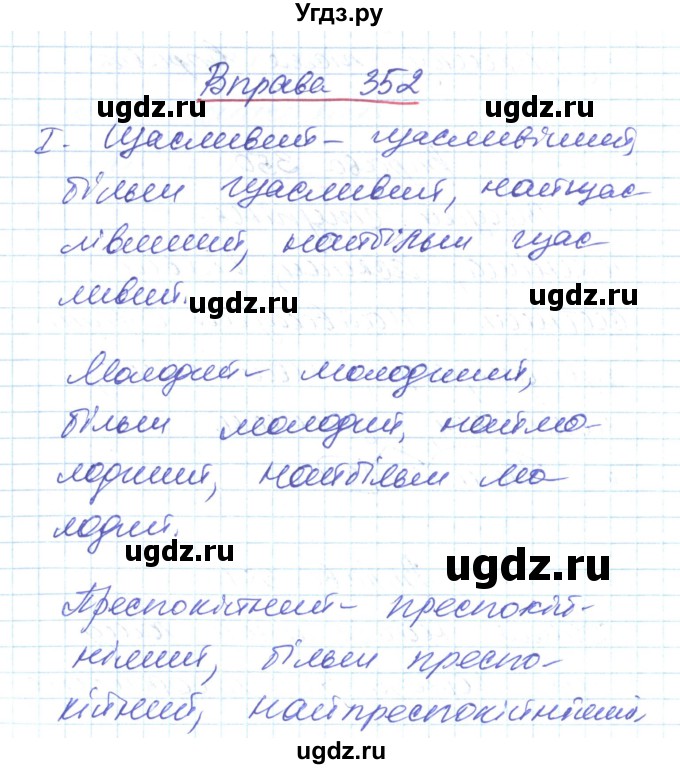 Угдз.ру
Вправа 352
ugdz.ru ugdz.ru
І. Щасливий – щасливіший,
більш щасливий, найщас-
лівіший, найбільш щас-
ливий.
ugdz.ru ugdz.ru
Молодий – молодший,
більш молодий, наймо-
лодший, найбільш мо-
лодий.
ugdz.ru ugdz.ru
Преспокійний – преспокій-
ніший, більш преспо-
кійний, найпреспокійніший,
ugdz.ru